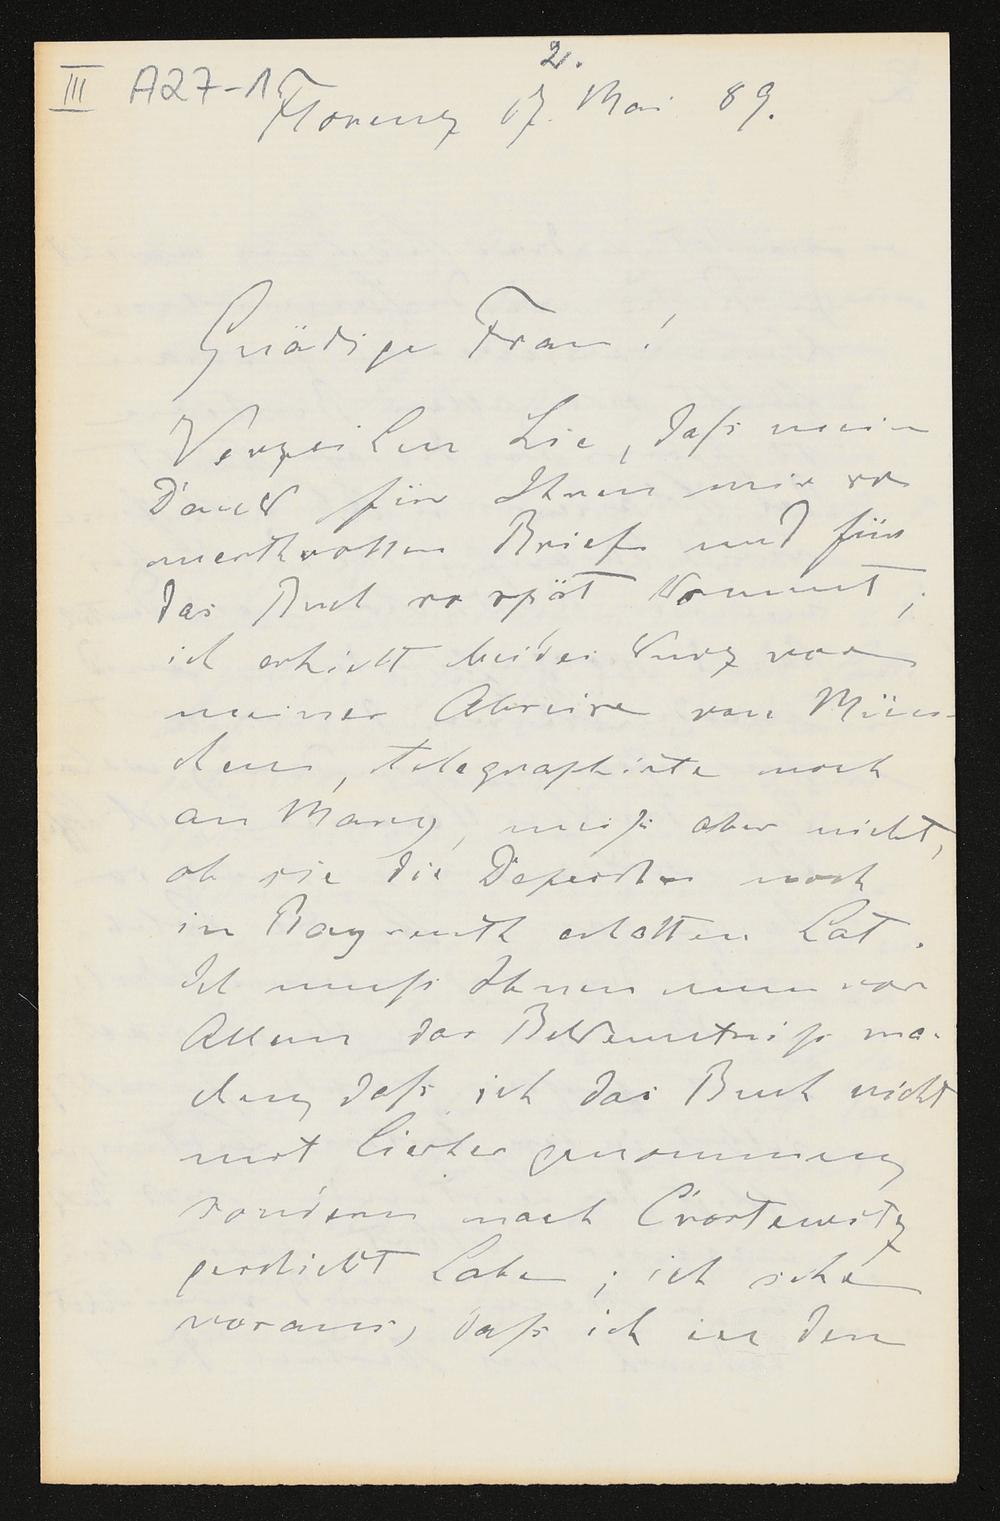 2.
III A27-15
Florenz 17. Mai 89.
Gnädige Frau!
Verzeihen Sie, daß mein
Dank für Ihren mir so
werthvollen Brief und für
das Buch so spät kommt;
ich erhielt beides kurz vor
meiner Abreise von Mün-
chen, telegraphirte noch
an Mary, weiß aber nicht,
ob sie die Depesche noch
in Bayreuth erhalten hat.
Ich muß Ihnen nun vor
Allem das Bekenntniß ma-
chen, daß ich das Buch nicht
mit hierher genommen,
sondern nach Crostewitz
geschickt habe; ich sehe
voraus, daß ich in den